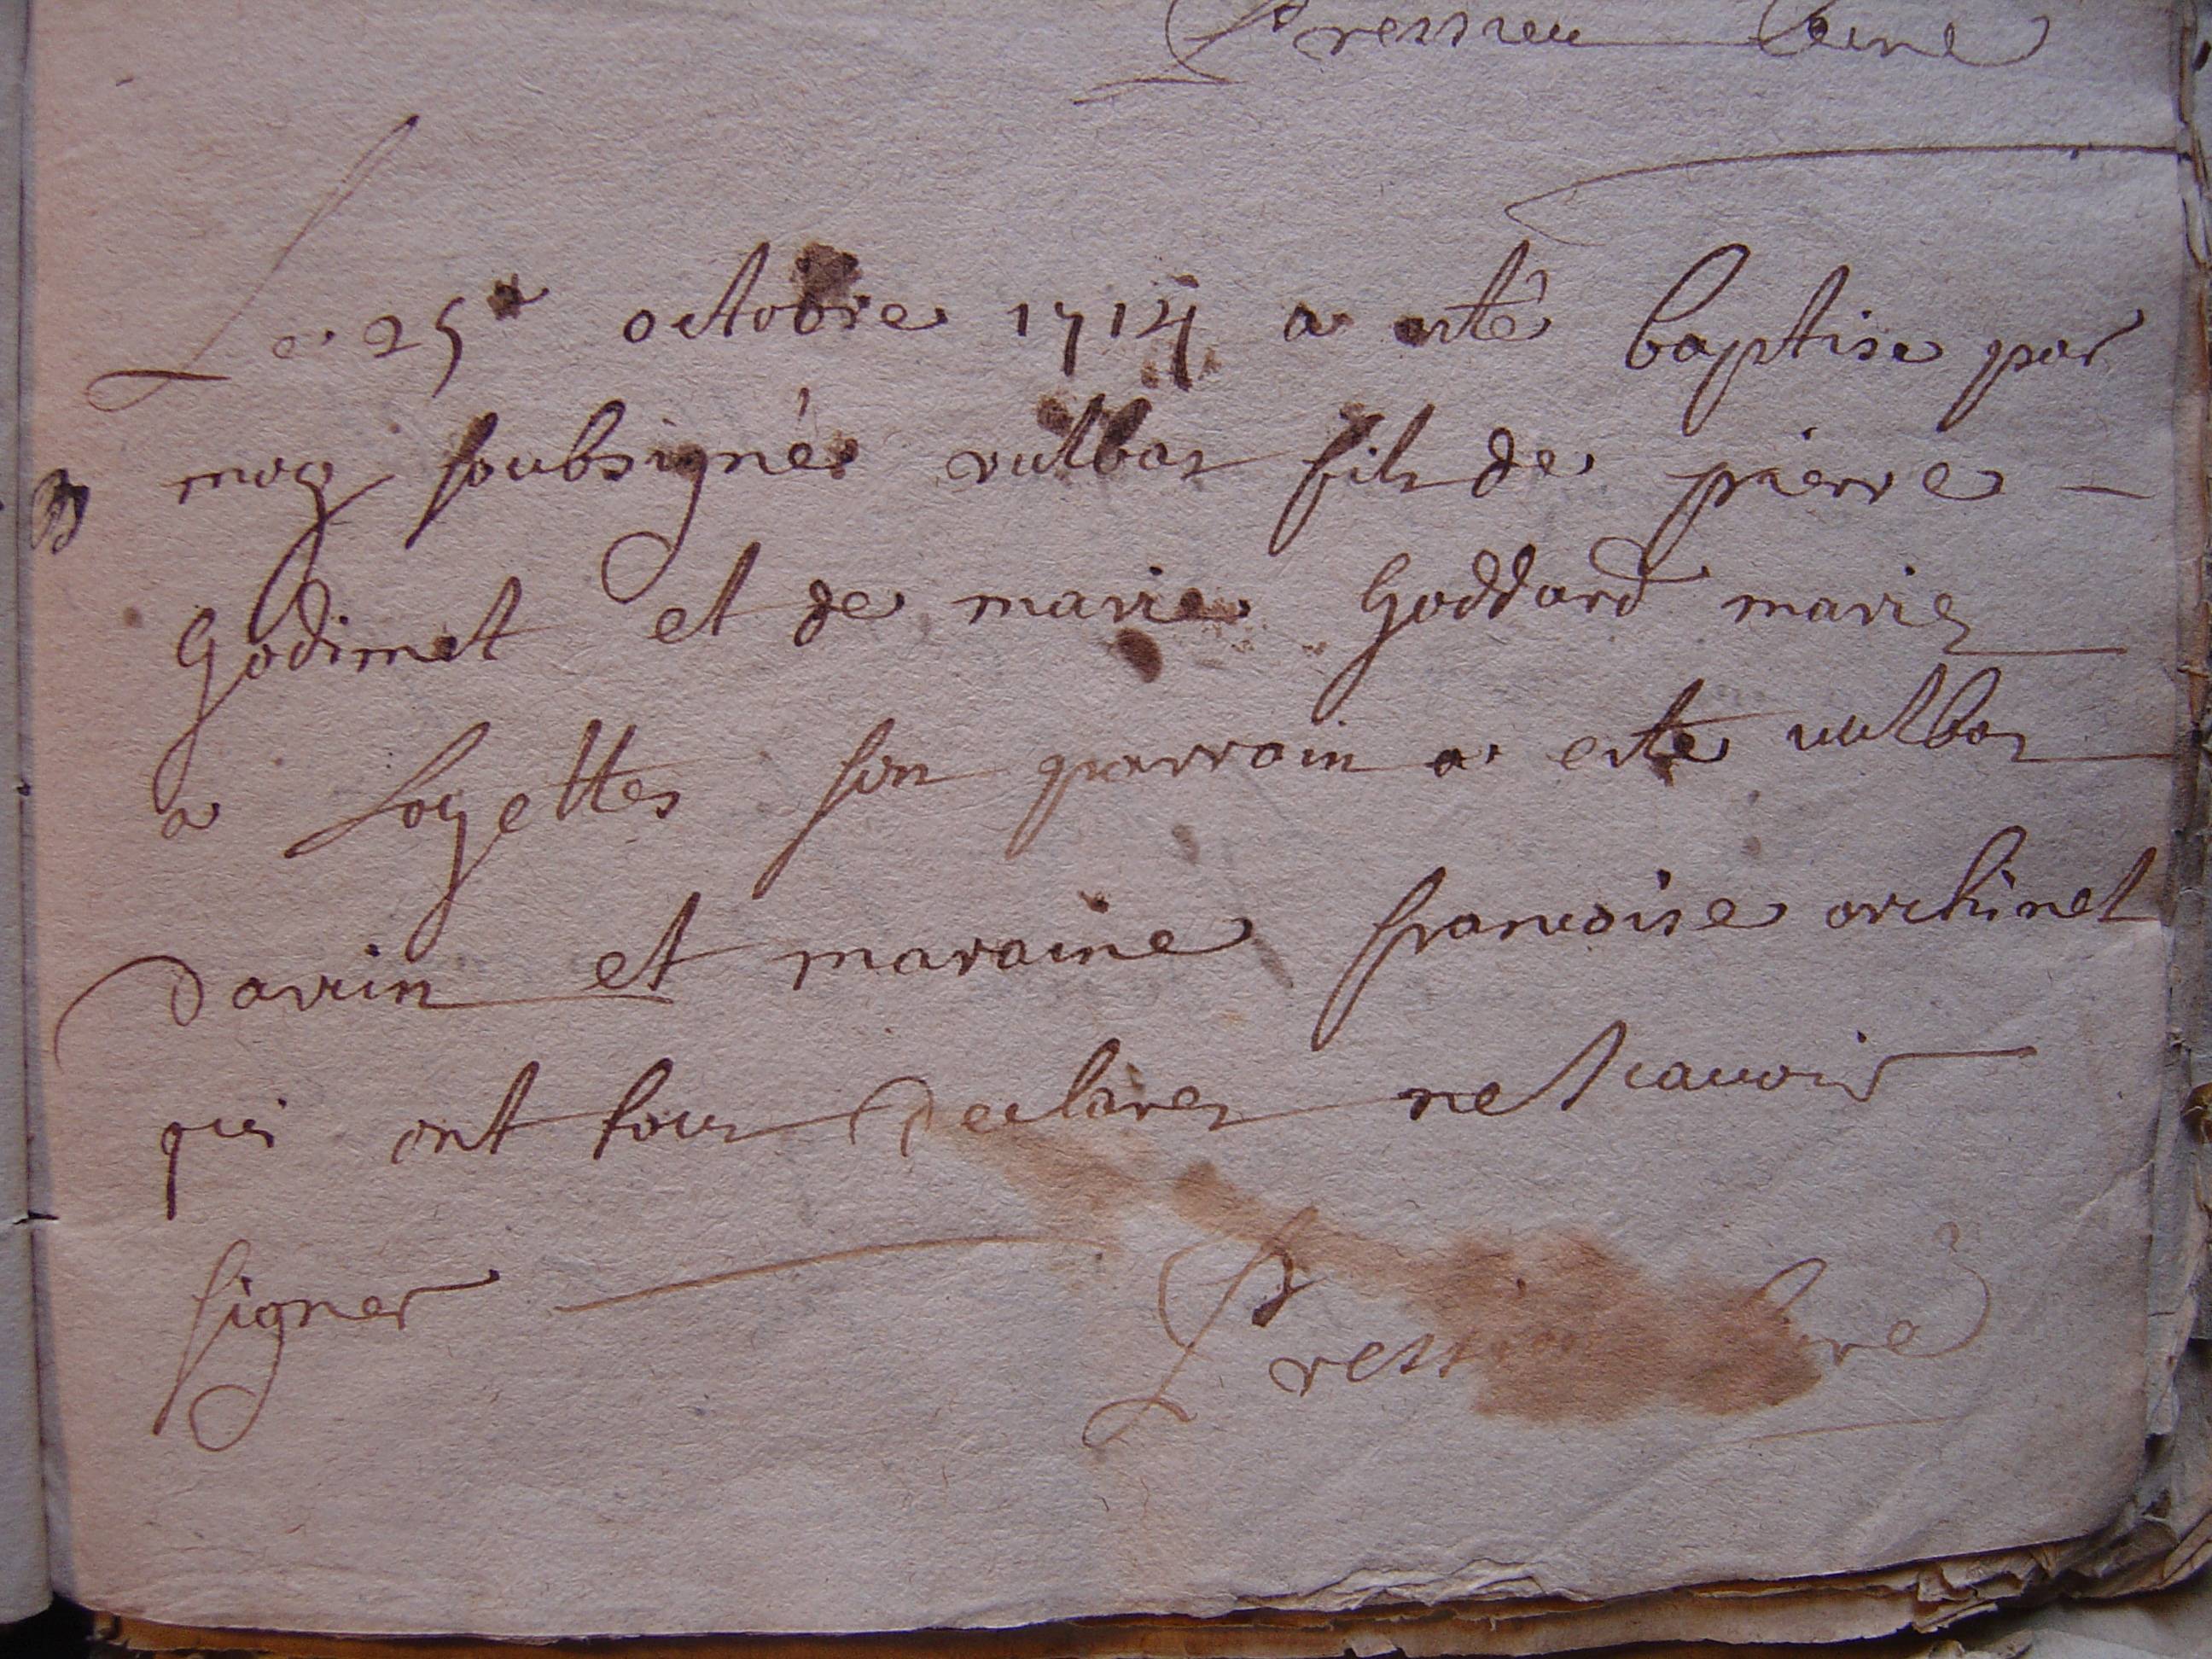 Pressieu Curé
Le 25e octobre 1714 a esté baptise par
B moy soubsigné vulbas fils de pierre -
Godimet et de marie Goddard mariez
a loyettes son parrain a esté vulbas
Darrin et maraine francoise orchinet
qui ont tous declarez ne scauoir
signer
Pressieu Curé